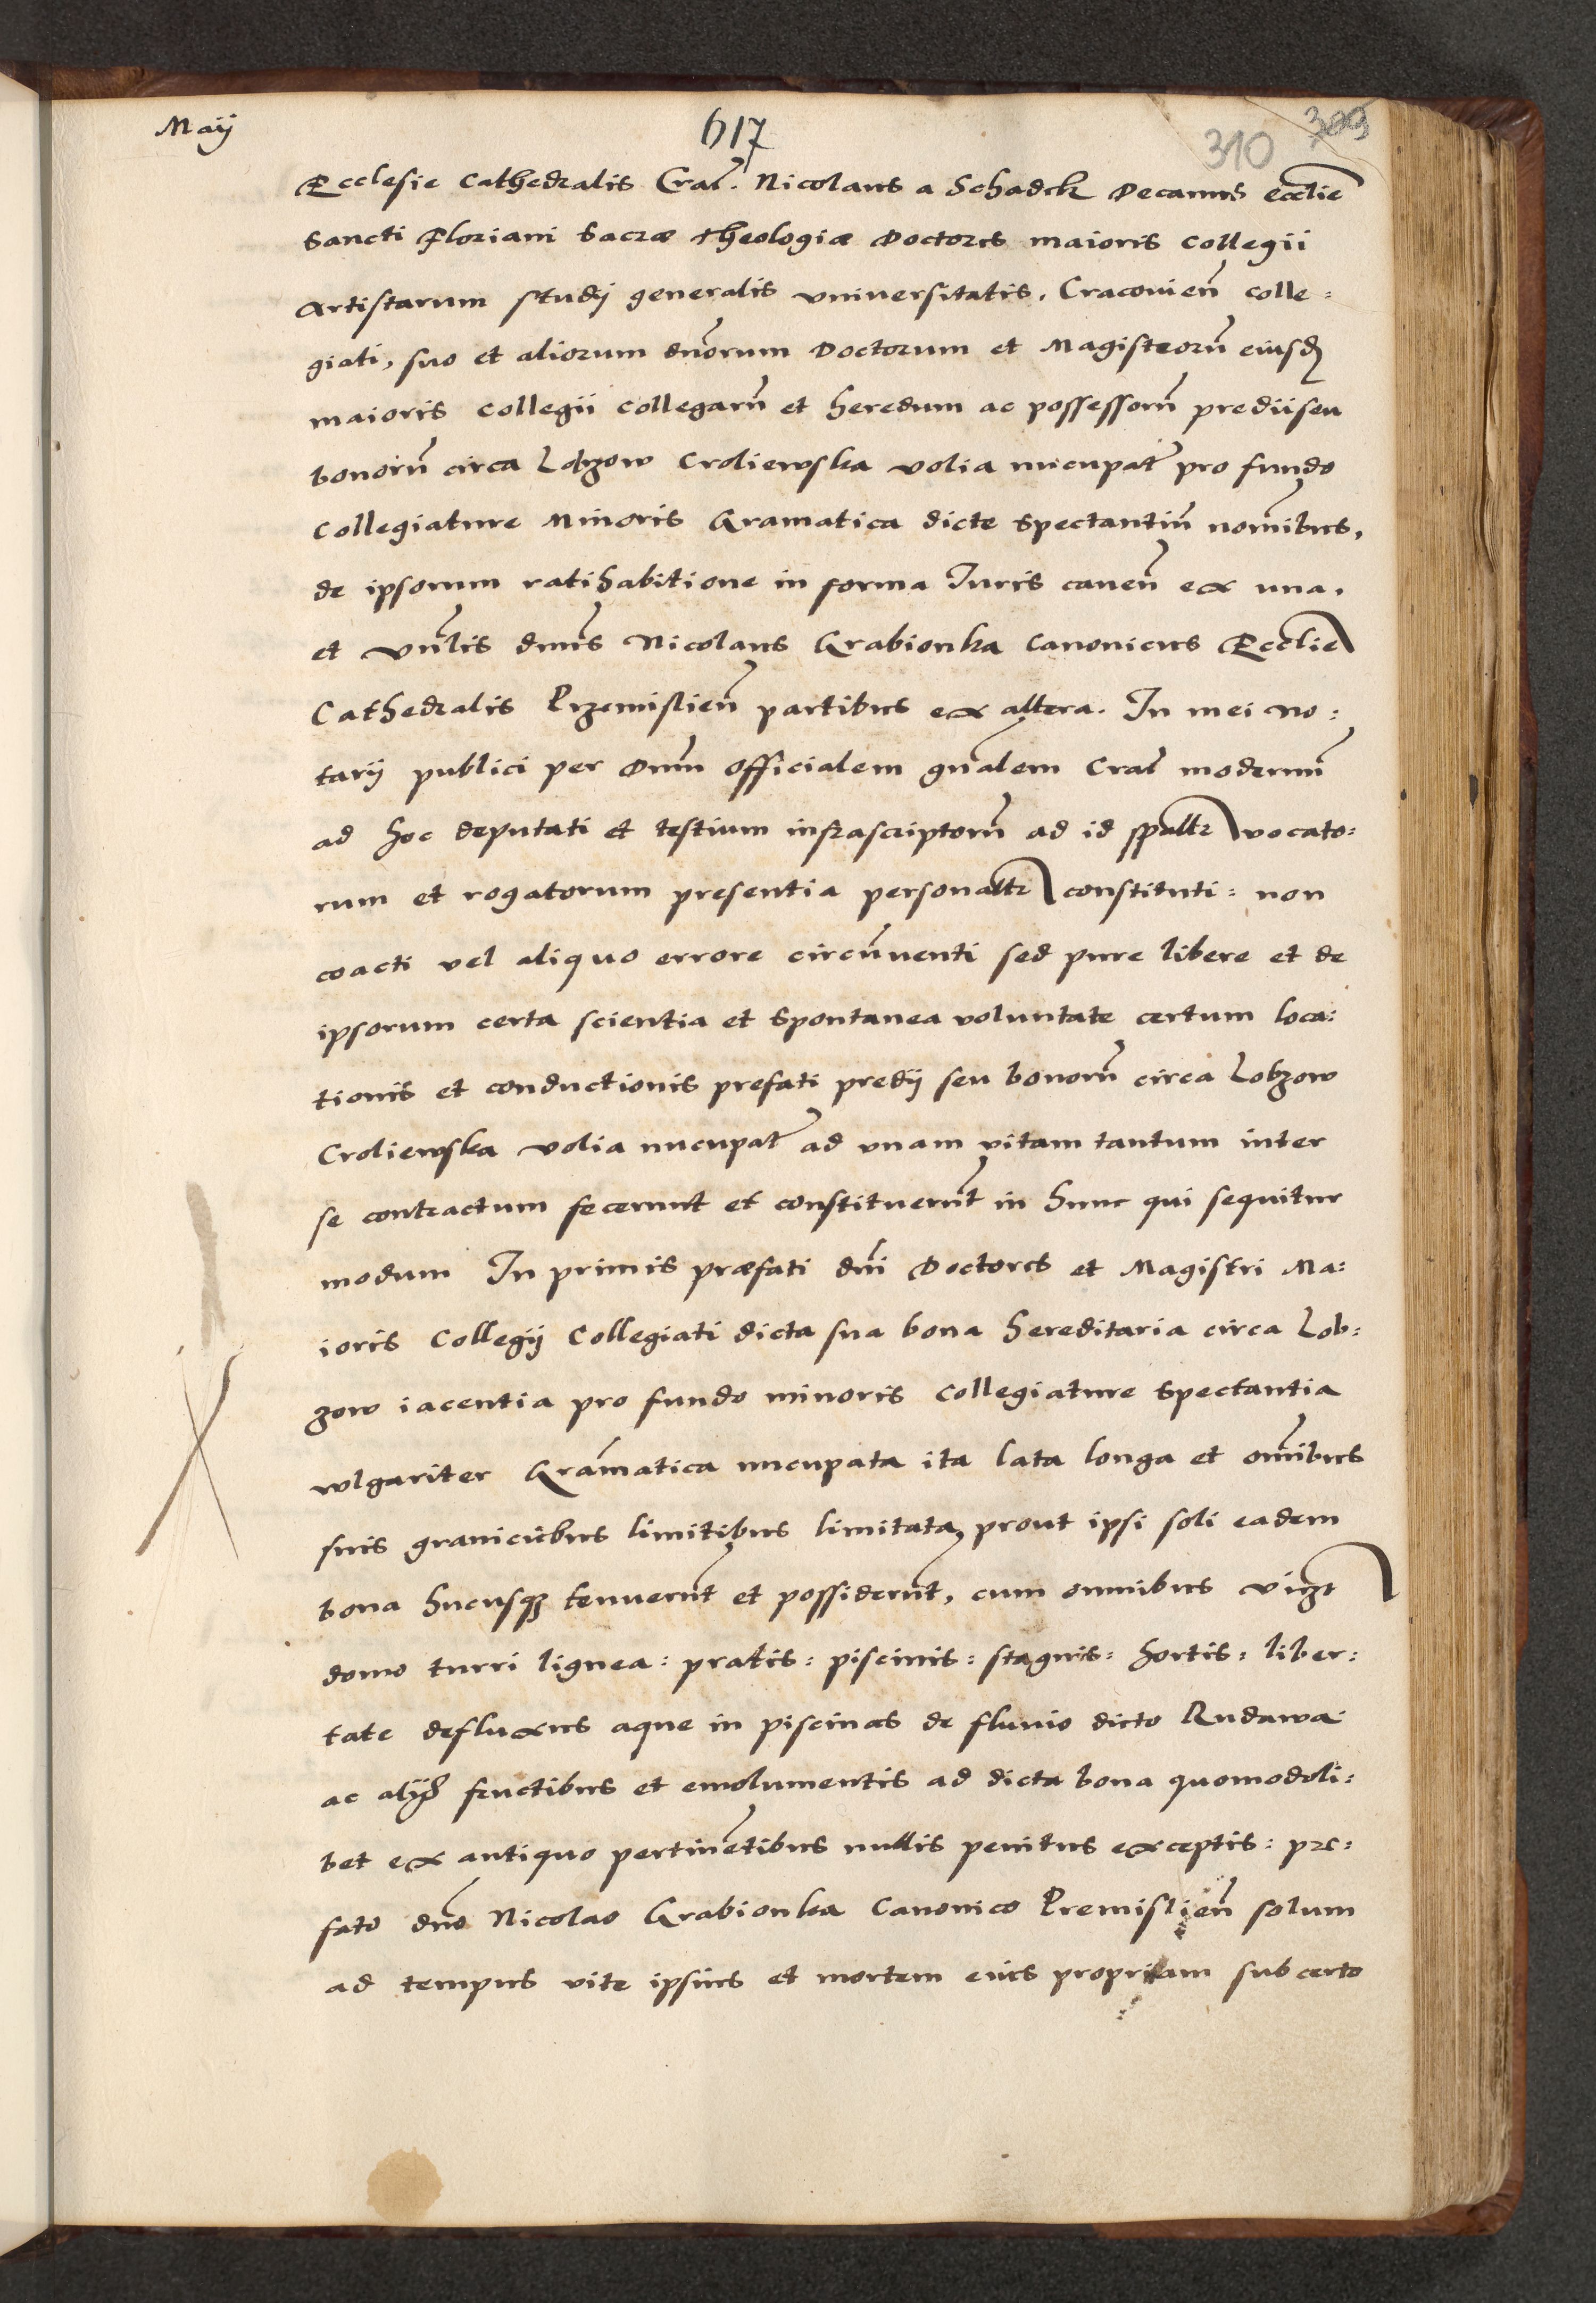 Maij
617
310 303
Ecclesie Cathedralis Crac̃. Nicolaus a Schadek Decanus eccl̃ie
Sancti Floriani Sacræ Theologiæ Doctores maioris Collegii
Artistarum studij generalis vniuersitatis. Cracouieñ colle:
giati, suo et aliorum dñorum Doctorum et Magistrorũ eiusd̃
maioris Collegii Collegarũ et heredum ac possessorũ predii seu
bonorũ circa Lobzow Croliewska volia nũcupat̃ pro fundo
Collegiature Minoris Gramatica dicte Spectantiũ nomĩbus,
de ipsorum ratihabitione in forma Iuris caueñ ex una,
et vñlis dñus Nicolaus Grabionka Canonicus Eccl̃ie
Cathedralis Przemislieñ partibus ex altera. In mei No:
tarij publici per Dñm Officialem gñalem Crac̃ modernũ
ad hoc deputati et testium infrascriptorũ ad id sp̃altr vocato:
rum et rogatorum presentia personaltr constituti: non
coacti vel aliquo errore circũuenti sed pure libere et de
ipsorum certa scientia et spontanea voluntate certum loca:
tionis et conductionis prefati predij seu bonorũ circa Lobzow
Croliewska volia nũcupat̃ ad vnam vitam tantum inter
se contractum fecerunt et constituerũt in hunc qui sequitur
modum In primis præfati dñi Doctores et Magistri Ma:
ioris Collegij Collegiati dicta sua bona hereditaria circa Lob:
zow iacentia pro fundo minoris Collegiature Spectantia
wlgariter Grãmatica nũcupata ita lata longa et om̃ibus
suis graniciebus limitibus limitata, prout ipsi soli eadem
bona hucusq̃ tenuerũt et possiderũt, cum omnibus vi3t
domo turri lignea: pratis: piscinis: stagnis: hortis: liber:
tate defluxus aque in piscinas de fluuio dicto Rudawa
ac alijs fructibus et emolumentis ad dicta bona quomodoli:
bet ex antiquo pertinẽtibus nullis penitus exceptis: pre:
fato dño Nicolao Grabionka Canonico Premislieñ solum
ad tempus vite ipsius et mortem eius propriam sub certo